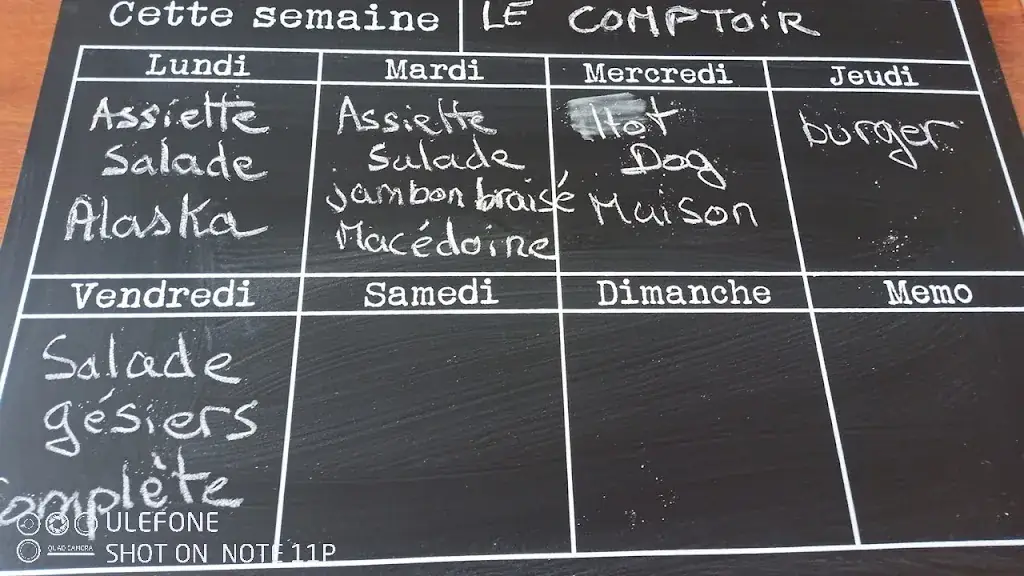 Cette semaine LE COMPTOIR
Lundi Mardi Mercredi Jeudi
Assiette
Salade
Alaska
Assiette
Salade
jambon braisé
Macédoine
Hot
Dog
Maison
burger
Vendredi Samedi Dimanche Memo
Salade
gésiers
Complète
ULEFONE
QUAD CAMERA
SHOT ON NOTE 11P